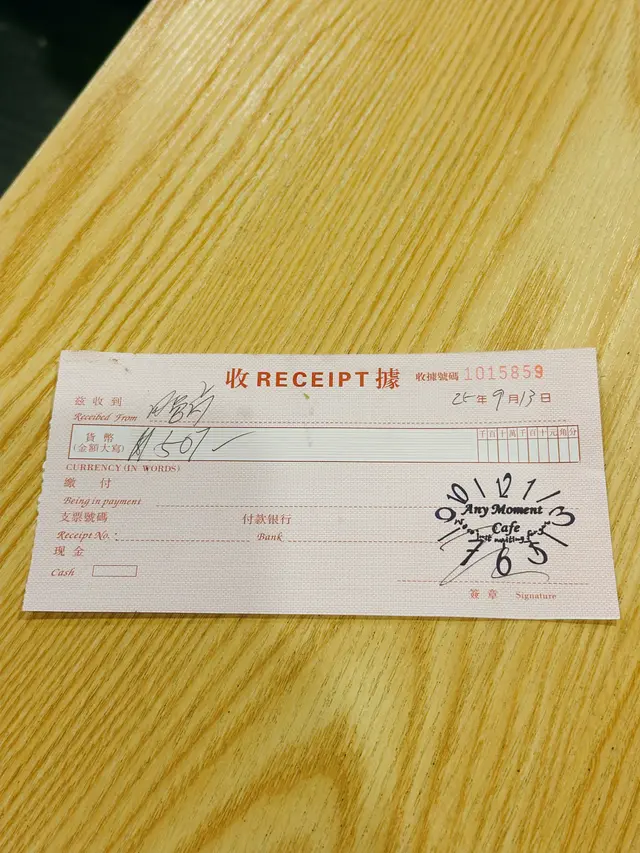 收 RECEIPT 據
收據號碼 1015859
茲收到
Received From
25年9月13日
貨幣
(金額大寫)
507
千百十萬千百十元角分
CURRENCY (IN WORDS)
繳付
Being in payment
支票號碼
付款銀行
Receipt No.:
Bank
現金
Cash
10 12 1
9 3
Any Moment
Cafe
7 6 5
簽章 Signature